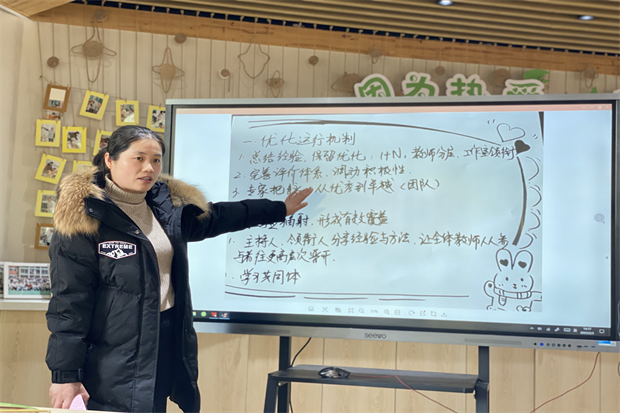 因为热爱
一 优化运行机制
1. 总结经验、保留优化：1+N、教师分层、工作室领衔
2. 完善评价体系、调动积极性
3. 专家把脉 从优秀到卓越（团队）
辐射，形成有效覆盖
1. 主持人、领衔人分享经验与方法，让全体教师人人参
与着往更高层次攀升
学习共同体
seewo
EXTREME